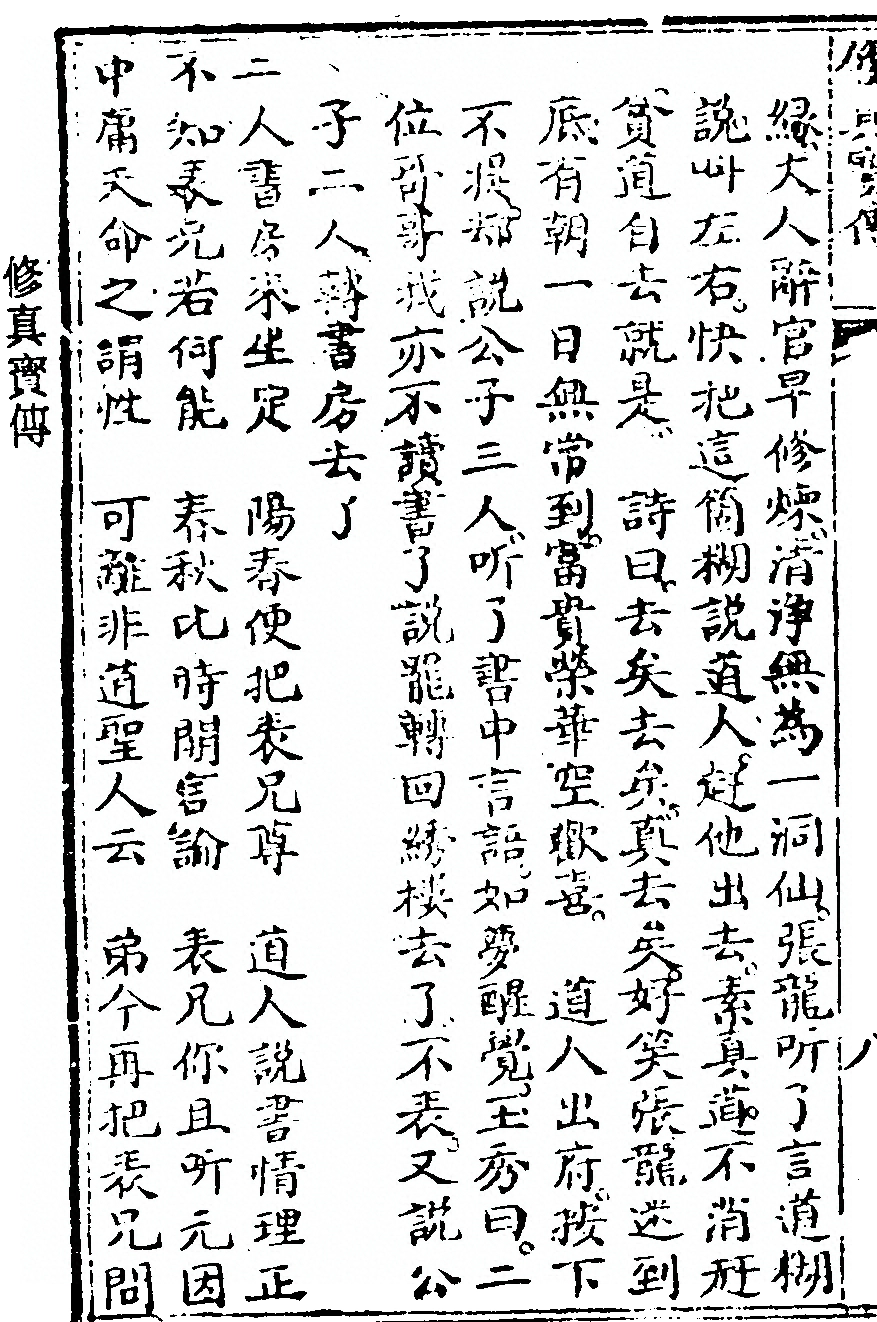 修真寶傳
八
緣大人辭官早修煉清净無為一洞仙張龍听了言道糊
說呌左右快把這箇糊説道人赶他出去素真道不消赶
貧道自去就是詩曰去矣去矣真去矣好笑張龍迷到
底有朝一日無常到富貴榮華空歡喜 道人出府按下
不提却說公子三人听了書中言語如夢醒覺玉秀曰二
位哥哥我亦不讀書了說罷轉回綉楼去了不表又説公
子二人轉書房去了
二人書房來坐定 陽春便把表兄尊 道人説書情理正
不知表兄若何能 春秋比時開言論 表兄你且听元因
中庸天命之謂性 可離非道聖人云 弟今再把表兄問
修真寶傳